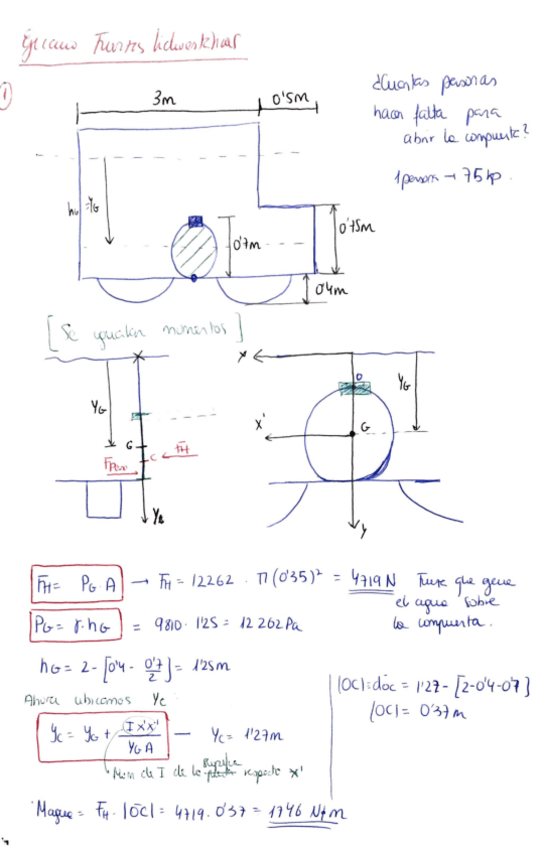 Ejercicio Fuerzas hidrostáticas
1
3m
0'5m
¿Cuantas personas
hacen falta para
abrir la compuerta?
1 persona → 75 kp.
YG
0'7m
0'75m
0'4m
[Se igualan momentos]
x
YG
G
c
FH
YR
x
O
YG
x'
G
y
FH = PG·A → FH = 12262 · π(0'35)² = 4719 N Fuerza que genera
el agua sobre
la compuerta.
PG = γ·hG = 9810·1'25 = 12262 Pa
hG = 2-[0'4-0'7/2] = 1'25m
Ahora ubicamos Yc
yc = yG + Ix'x'/YG A — Yc = 1'27m
Mom de I de la respecto x'
|OC| = doc = 1'27-[2-0'4-0'7]
|OC| = 0'37m
Magua = FH·|OC| = 4719·0'37 = 1746 N*m